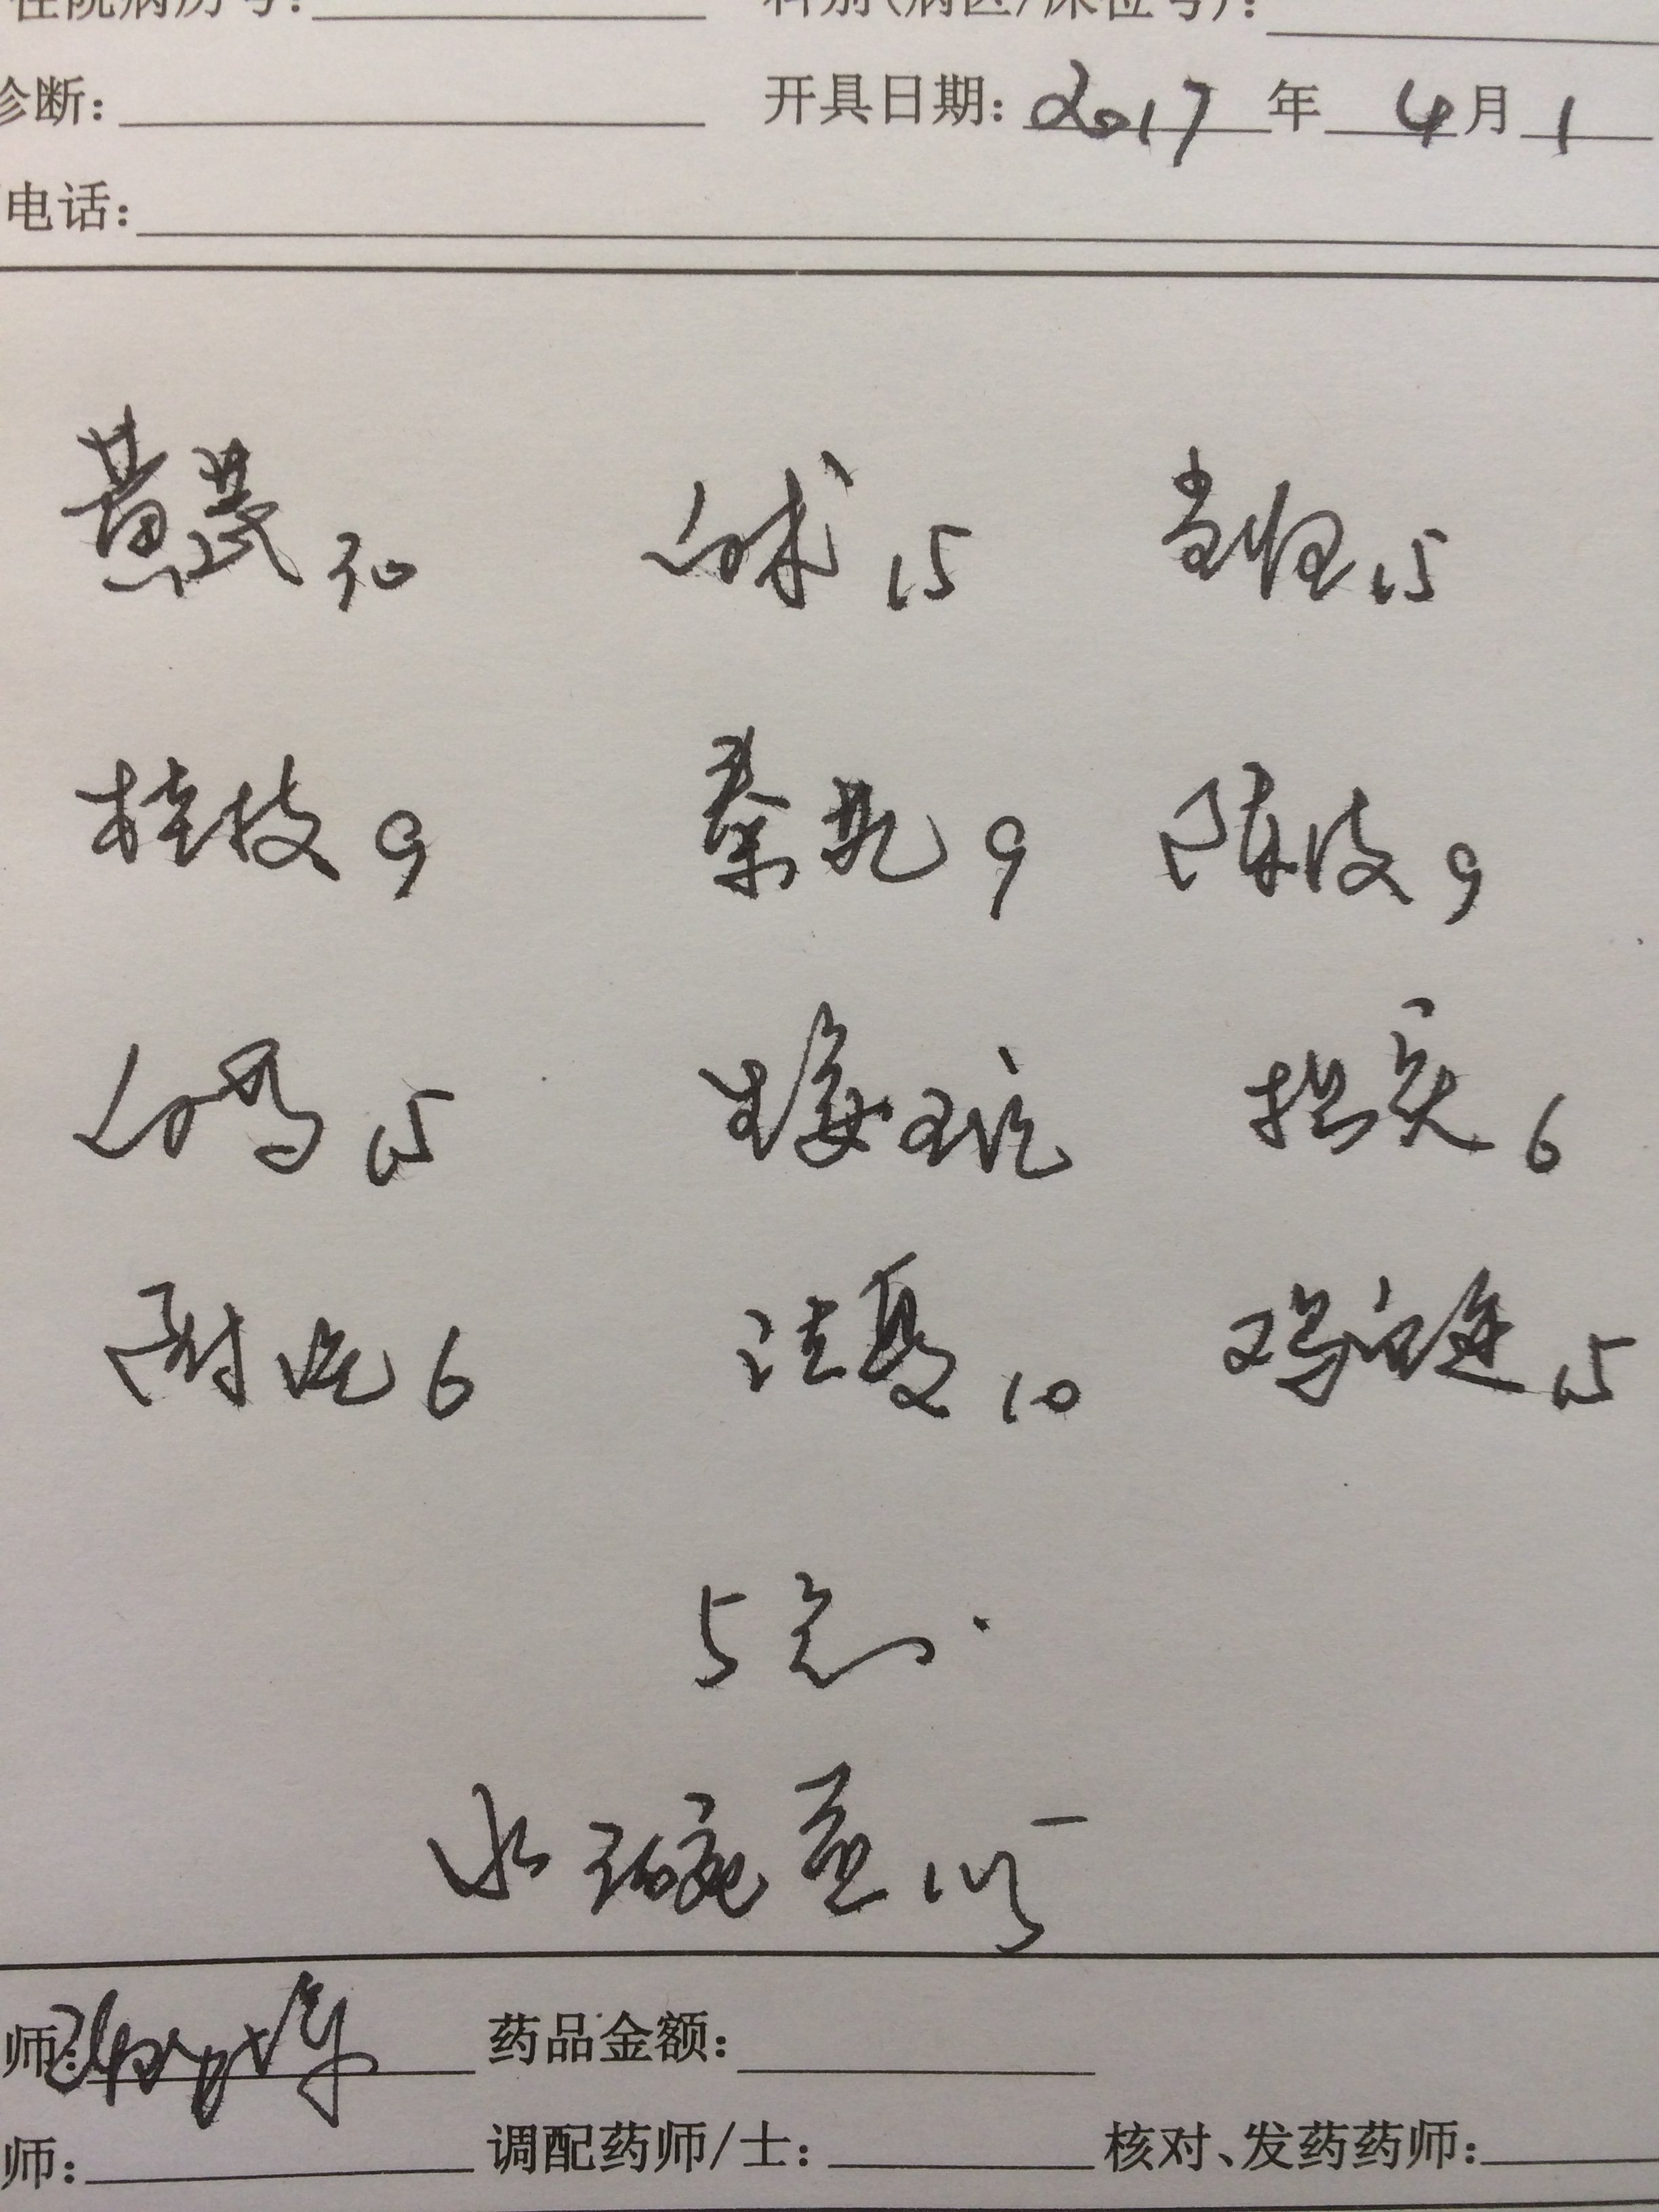 住院病历号: 科别(病区/床位号):
诊断: 开具日期: 2017 年 4 月 1
电话:
黄芪 30 白术 15 当归 15
桂枝 9 秦艽 9 陈皮 9
白芍 15 6
6 法夏 10 鸡内金 15
5剂.
水 碗煎
师: 药品金额:
师: 调配药师/士: 核对、发药药师: